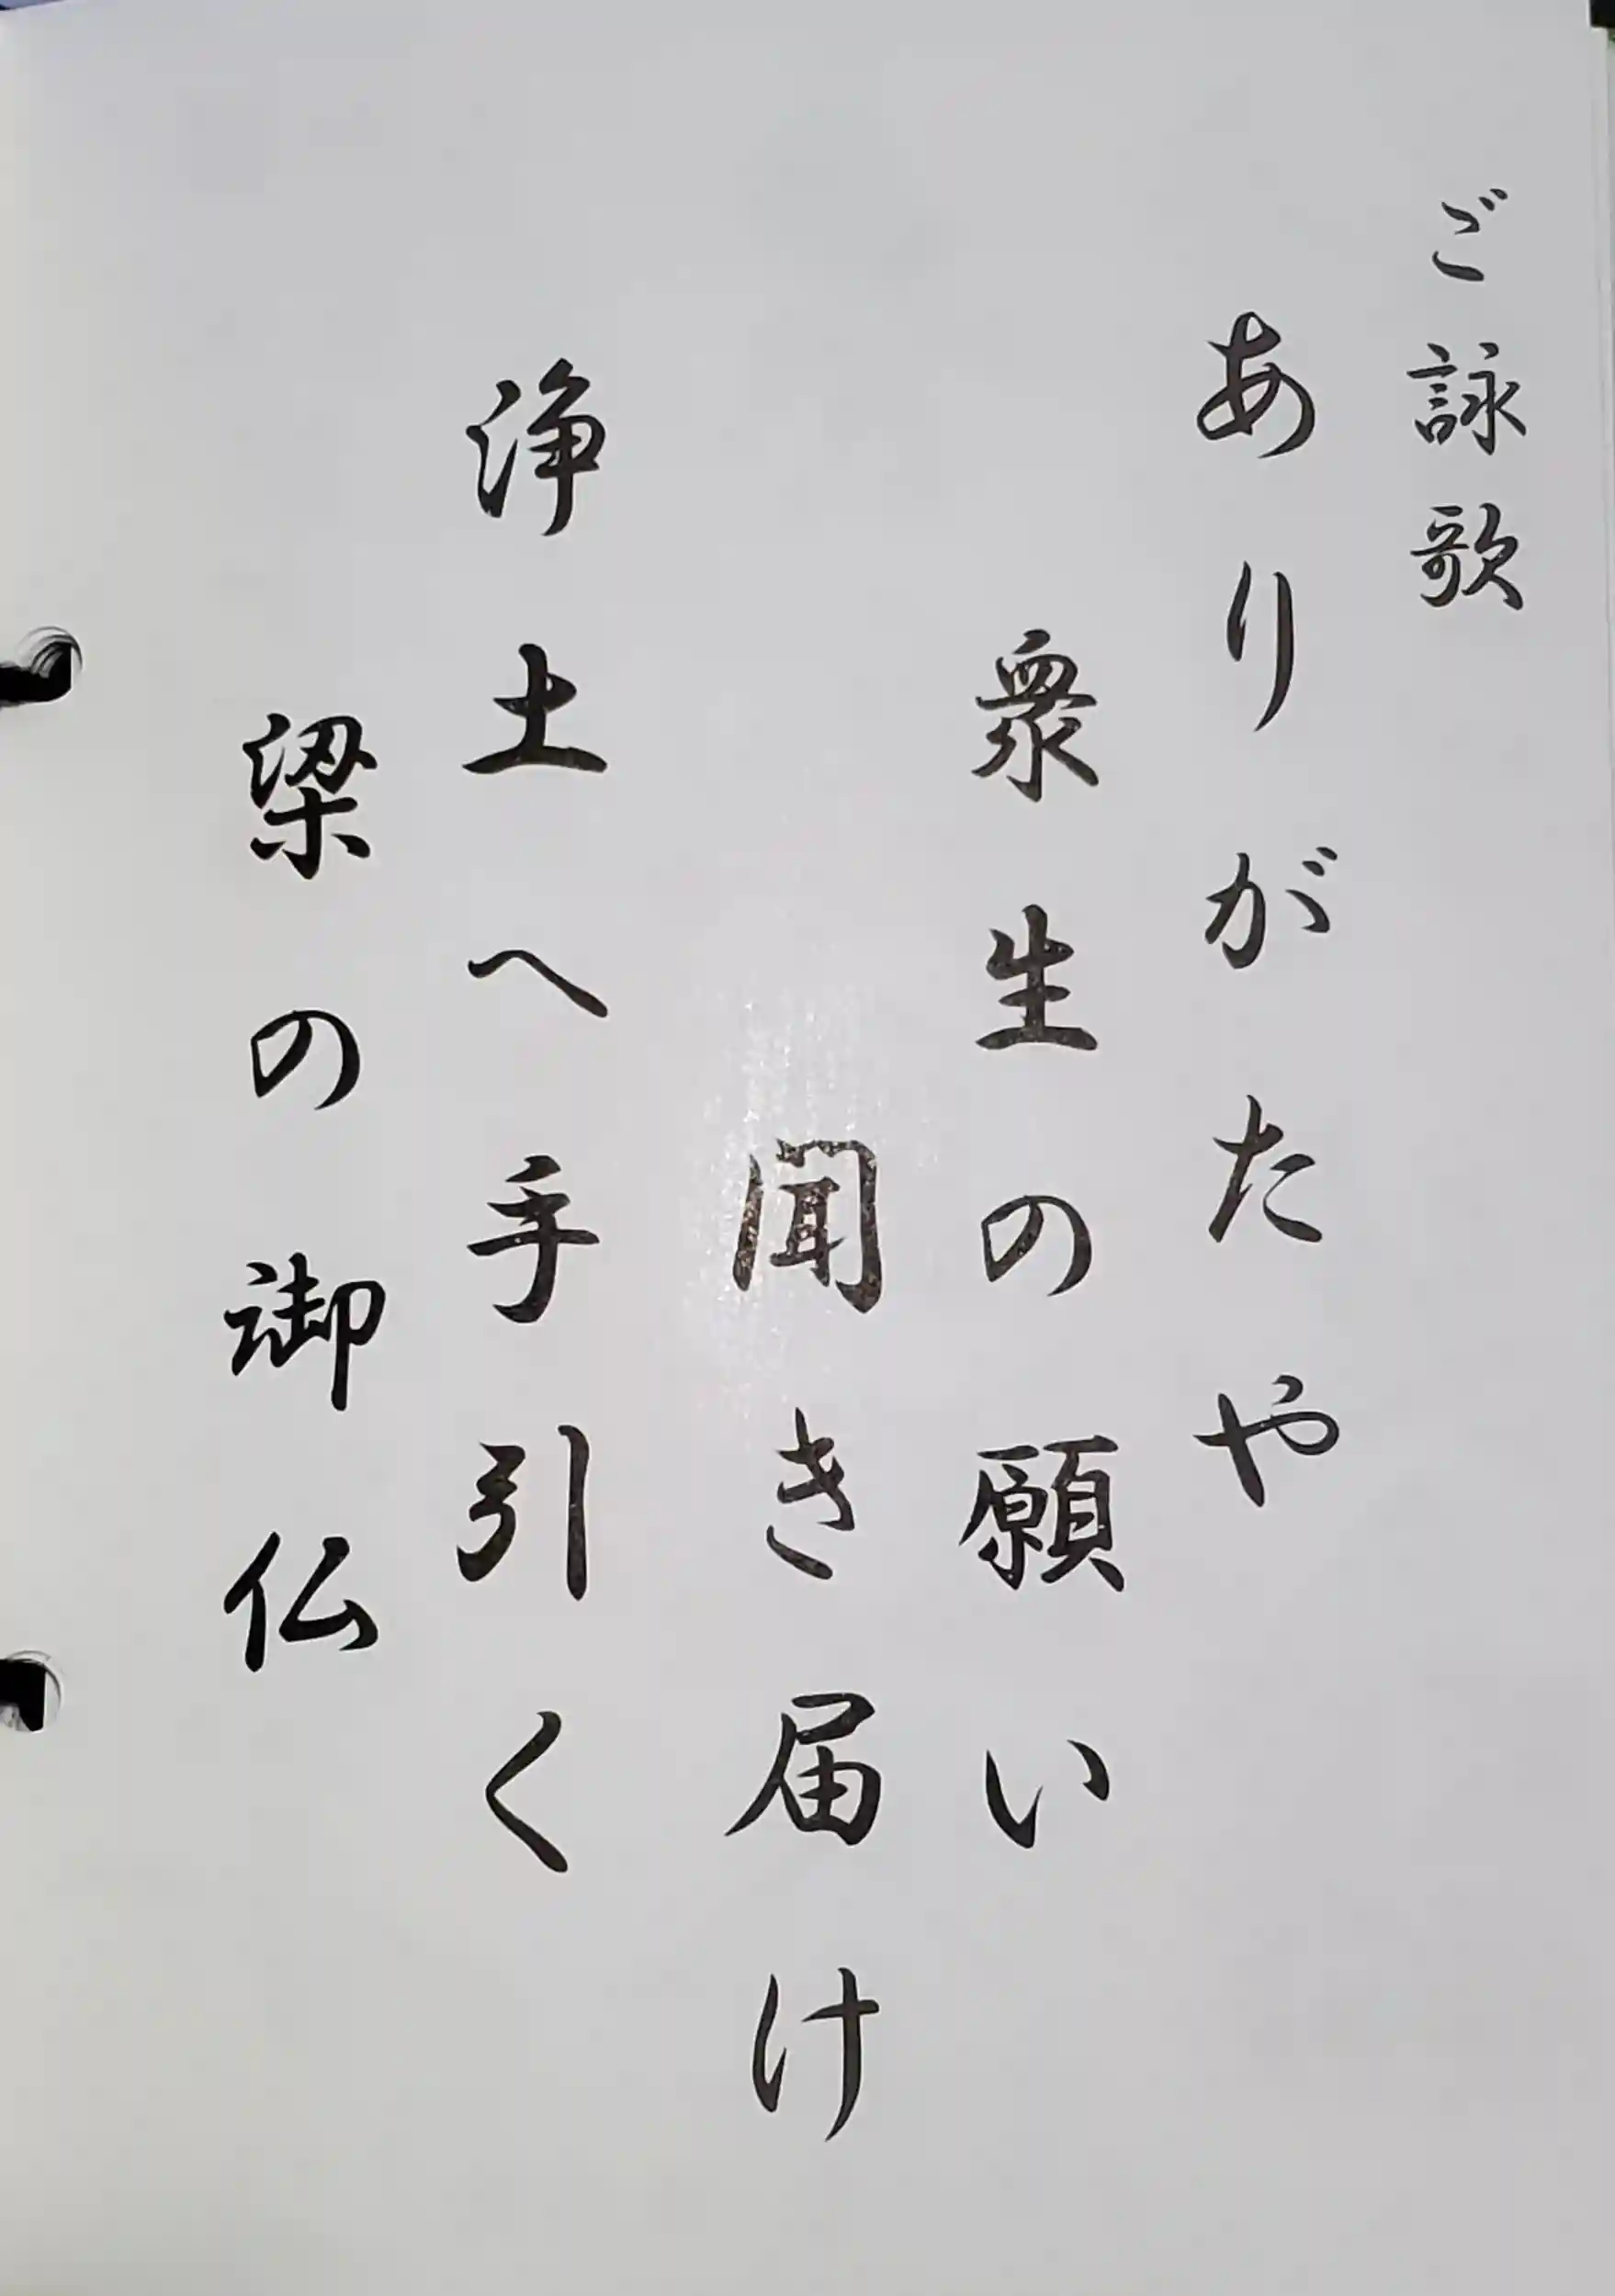 ご詠歌
ありがたや
衆生の願い
聞き届け
浄土へ手引く
梁の御仏